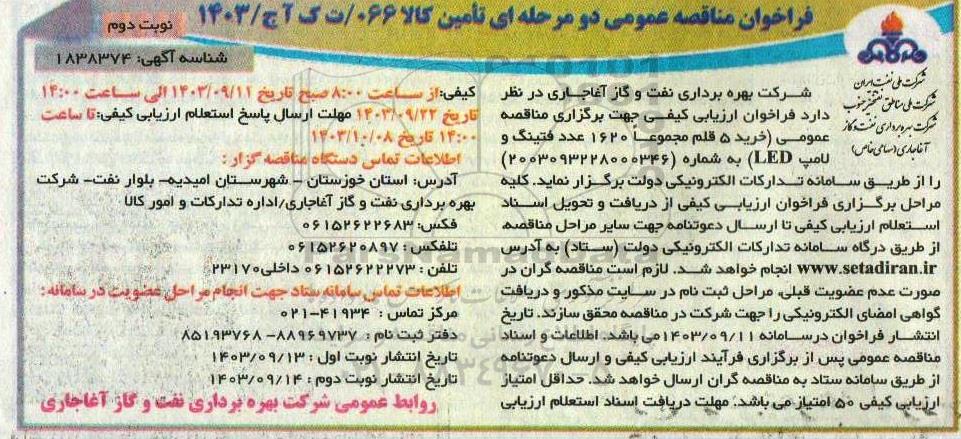 فراخوان مناقصه عمومی دو مرحله ای تأمین کالا ۰۶۶/ت ک آ ج/۱۴۰۳
نوبت دوم
شناسه آگهی: ۱۸۳۸۳۷۴
شرکت ملی نفت ایران
شرکت ملی مناطق نفتخیز جنوب
شرکت بهره برداری نفت و گاز
آغاجاری (سهامی خاص)
شرکت بهره برداری نفت و گاز آغاجاری در نظر
دارد فراخوان ارزیابی کیفی جهت برگزاری مناقصه
عمومی (خرید ۵ قلم مجموعاً ۱۶۲۰ عدد فتینگ و
لامپ LED) به شماره (۲۰۰۳۰۹۳۲۲۸۰۰۰۳۴۶)
را از طریق سامانه تدارکات الکترونیکی دولت برگزار نماید. کلیه
مراحل برگزاری فراخوان ارزیابی کیفی از دریافت و تحویل اسناد
استعلام ارزیابی کیفی تا ارسال دعوتنامه جهت سایر مراحل مناقصه،
از طریق درگاه سامانه تدارکات الکترونیکی دولت (ستاد) به آدرس
www.setadiran.ir انجام خواهد شد. لازم است مناقصه گران در
صورت عدم عضویت قبلی، مراحل ثبت نام در سایت مذکور و دریافت
گواهی امضای الکترونیکی را جهت شرکت در مناقصه محقق سازند. تاریخ
انتشار فراخوان درسامانه ۱۴۰۳/۰۹/۱۱می باشد. اطلاعات و اسناد
مناقصه عمومی پس از برگزاری فرآیند ارزیابی کیفی و ارسال دعوتنامه
از طریق سامانه ستاد به مناقصه گران ارسال خواهد شد. حداقل امتیاز
ارزیابی کیفی ۵۰ امتیاز می باشد. مهلت دریافت اسناد استعلام ارزیابی
کیفی:از ساعت ۸:۰۰ صبح تاریخ ۱۴۰۳/۰۹/۱۱ الی ساعت ۱۴:۰۰
تاریخ ۱۴۰۳/۰۹/۲۲ مهلت ارسال پاسخ استعلام ارزیابی کیفی:تا ساعت
۱۴:۰۰ تاریخ ۱۴۰۳/۱۰/۰۸
اطلاعات تماس دستگاه مناقصه گزار :
آدرس: استان خوزستان – شهرستان امیدیه- بلوار نفت- شرکت
بهره برداری نفت و گاز آغاجاری/اداره تدارکات و امور کالا
فکس: ۰۶۱۵۲۶۲۲۶۸۳
تلفکس : ۰۶۱۵۲۶۲۰۸۹۷
تلفن : ۰۶۱۵۲۶۲۲۲۷۳ داخلی۲۳۱۷۰
اطلاعات تماس سامانه ستاد جهت انجام مراحل عضویت در سامانه :
مرکز تماس : ۴۱۹۳۴-۰۲۱
دفتر ثبت نام : ۸۸۹۶۹۷۳۷- ۸۵۱۹۳۷۶۸
تاریخ انتشار نوبت اول : ۱۴۰۳/۰۹/۱۳
تاریخ انتشار نوبت دوم : ۱۴۰۳/۰۹/۱۴
روابط عمومی شرکت بهره برداری نفت و گاز آغاجاری
ParsNamadData